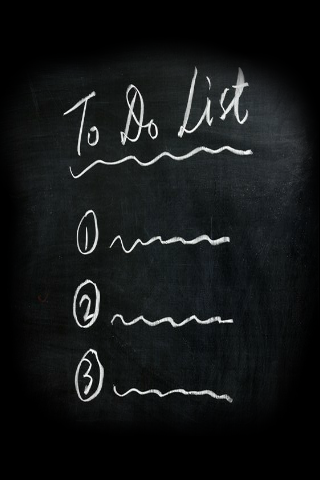 To Do List
1
2
3